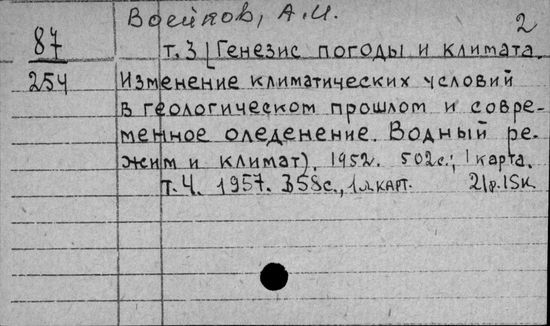 Воейков, А.И.
2
87
254
т.3 [Генезис погоды и климата.
Изменение климатических условий
в геологическом прошлом и совре-
менное оледенение. Водный ре-
жим и климат). 1952. 502с.; 1 карта.
т.4. 1957. 358с., 1л.карт. 21р.15к.